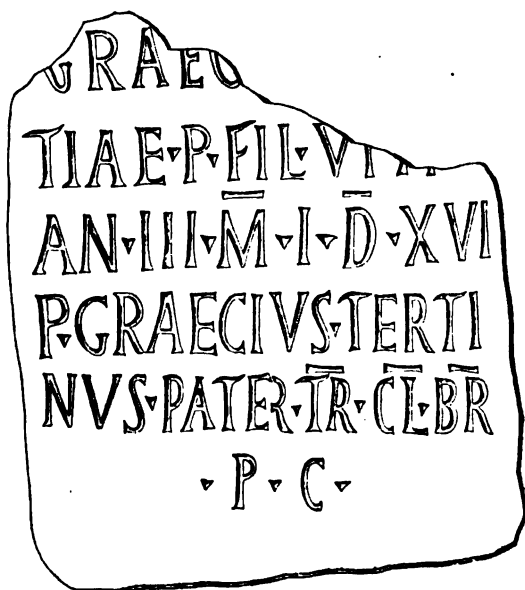 GRAEC
TIAE·P·FIL·VI
AN·III·M̅·I·D̅·XVI
P·GRAECIVS·TERTI
NVS·PATER·T̅R̅·C̅L̅·B̅R̅
·P·C·